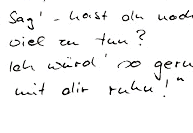 Sag' - hast du noch
viel zu tun?
Ich würd' so gern
mit dir ruhn!"